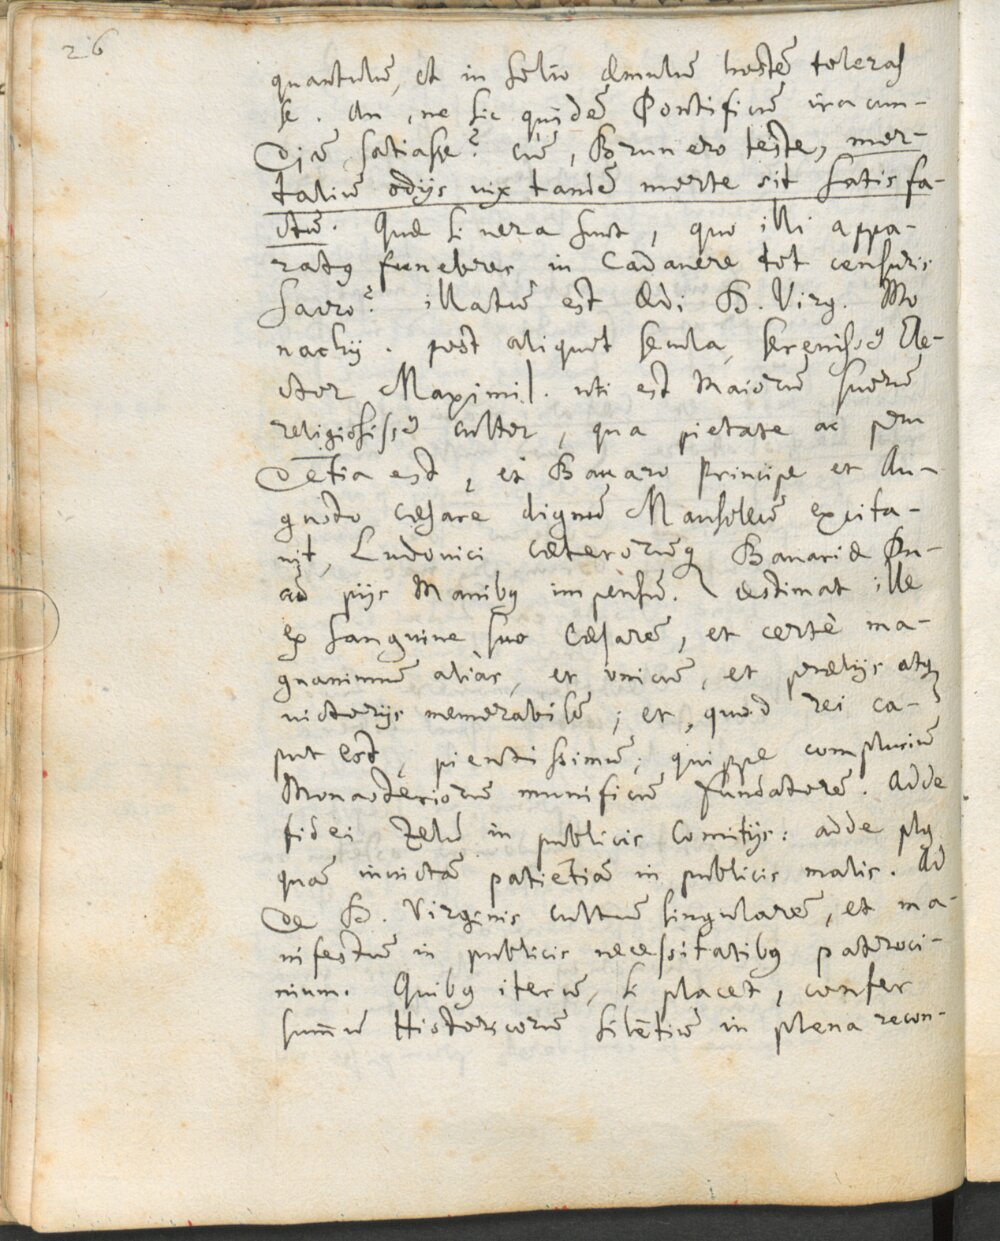 26
quantulũ, et in solio æmulũ hostẽ toleras
se. An, ne sic quidẽ Pontificũ iracun-
diã satiasse? cũ, Brunnero teste, mor-
taliũ odijs vix tandẽ morte sit satisfa-
ctũ. Quæ si vera sunt, quo illi appa-
ratꝰ funebres in Cadavere tot censuris
sacro? illatũ est Ædi B. Virg. Mo
nachij. post aliquot secula, serenissꝰ Ele-
ctor Maximil. uti est Maiorũ suorũ
religiosissꝰ cultor, qua pietate ac pru
dẽtia est, et Bavaro Principe et Au-
gusto cæsare dignũ Mausoleũ excita-
vit, Ludovici cæterorũq Bavariæ Du-
cũ pijs Manibꝰ impensũ. æstimat ille
ex sanguine suo Cæsarẽ, et certè ma-
gnanimũ aliàs, et unicũ, et prælijs atq
victorijs memorabilẽ; et, quod rei ca-
put est, pientissimũ; quippe compluriũ
Monasteriorũ munificũ fundatorẽ. Adde
fidei zelũ in publicis Comitijs: adde plꝰ
quã invictã patiẽtiã in publicis malis. Ad
de B. Virginis cultũ singularẽ, et ma-
nifestũ in publicis necessitatibꝰ patroci-
nium. Quibꝰ iterũ, si placet, confer
sum̃ũ Historicorũ silẽtiũ in plena recon-